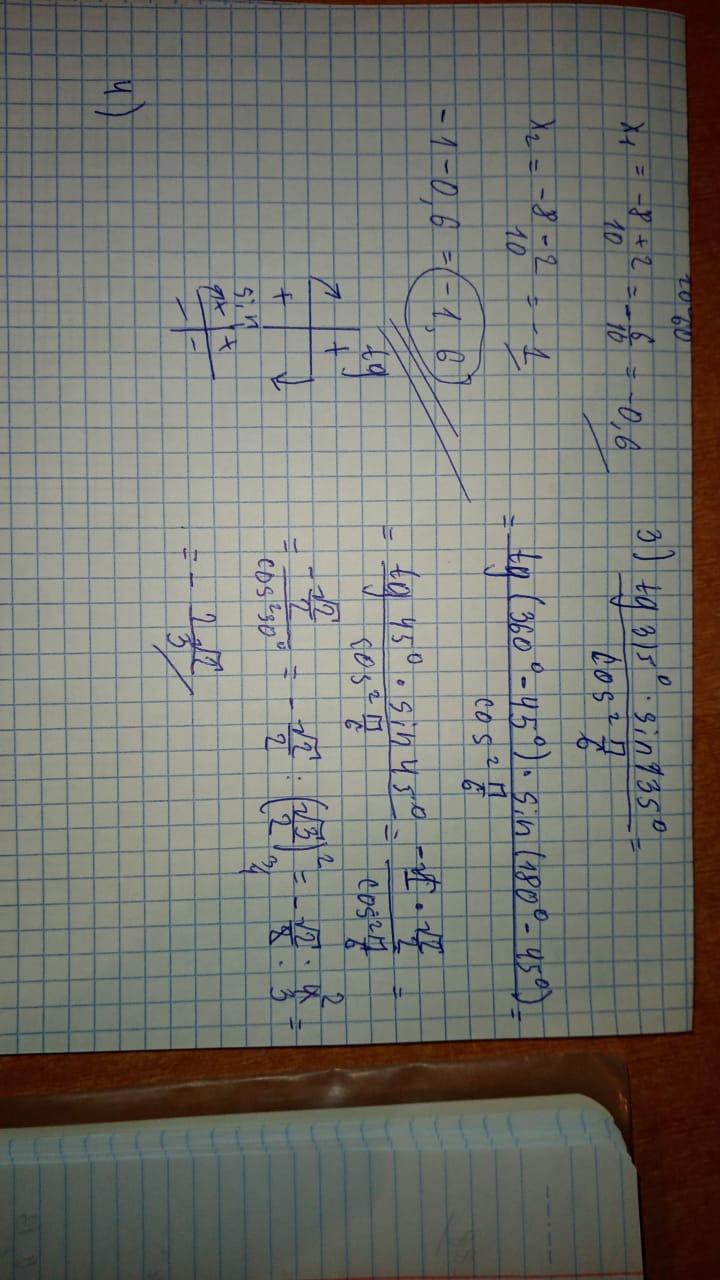 x₁ = (-8+2)/10 = -6/10 = -0,6
x₂ = (-8-2)/10 = -1
-1-0,6 = -1,6
tg
+
+
sin
x
-
-
4)
3) (tg 315° · sin 135°)/(cos² π/6) =
= (tg (360°-45°) · sin (180°-45°))/(cos² π/6) =
= (tg 45° · sin 45°)/(cos² π/6) = (-1 · √2/2)/(cos² π/6) =
= (-√2/2)/(cos² 30°) = - √2/2 : (√3/2)² = - √2/2 · 4/3 =
= - 2√2/3